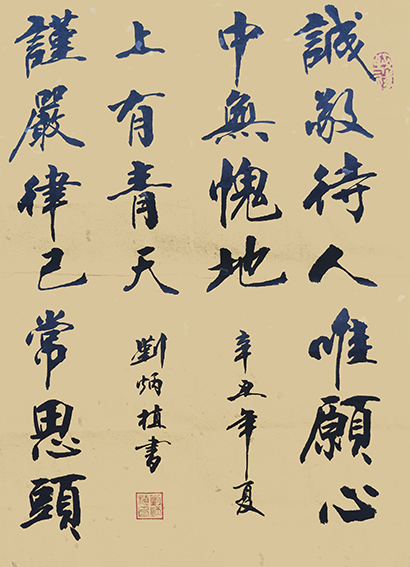 誠敬待人唯願心
中無愧地
辛丑年夏
謹嚴律己常思頭
上有青天
劉炳植書